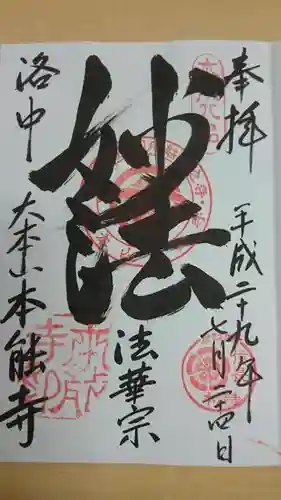 奉拝
平成二十九年七月二十四日
妙法
法華宗
洛中
大本山本能寺